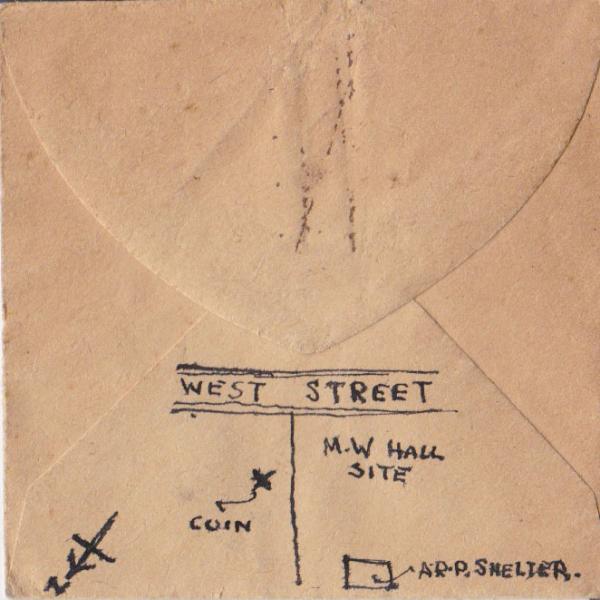 WEST STREET
M.W HALL
SITE
COIN
A.R.P. SHELTER.
N